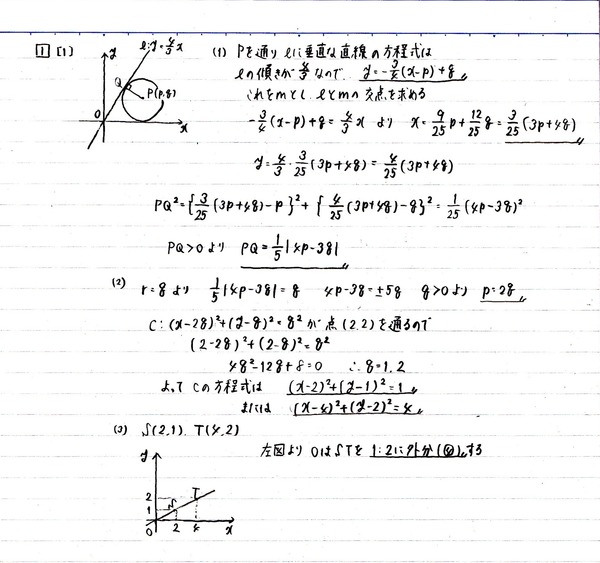 1 [1]
y
l: y=4/3x
Q
P(p,q)
O
x
(1) Pを通りlに垂直な直線の方程式は
lの傾きが4/3なので、y=-3/4(x-p)+q
これをmとし、lとmの交点を求める
-3/4(x-p)+q=4/3x より x=9/25p+12/25q=3/25(3p+4q)
y=4/3・3/25(3p+4q)=4/25(3p+4q)
PQ²={3/25(3p+4q)-p}²+{4/25(3p+4q)-q}²=1/25(4p-3q)²
PQ>0より PQ=1/5|4p-3q|
(2) r=qより 1/5|4p-3q|=q 4p-3q=±5q q>0より p=2q
C: (x-2q)²+(y-q)²=q²が点(2,2)を通るので
(2-2q)²+(2-q)²=q²
4q²-12q+8=0 ∴q=1,2
よってCの方程式は (x-2)²+(y-1)²=1
または (x-4)²+(y-2)²=4
(3) S(2,1), T(4,2)
左図より OはSTを1:2に外分(⑥)する
y
2
1
S
T
O
2
4
x